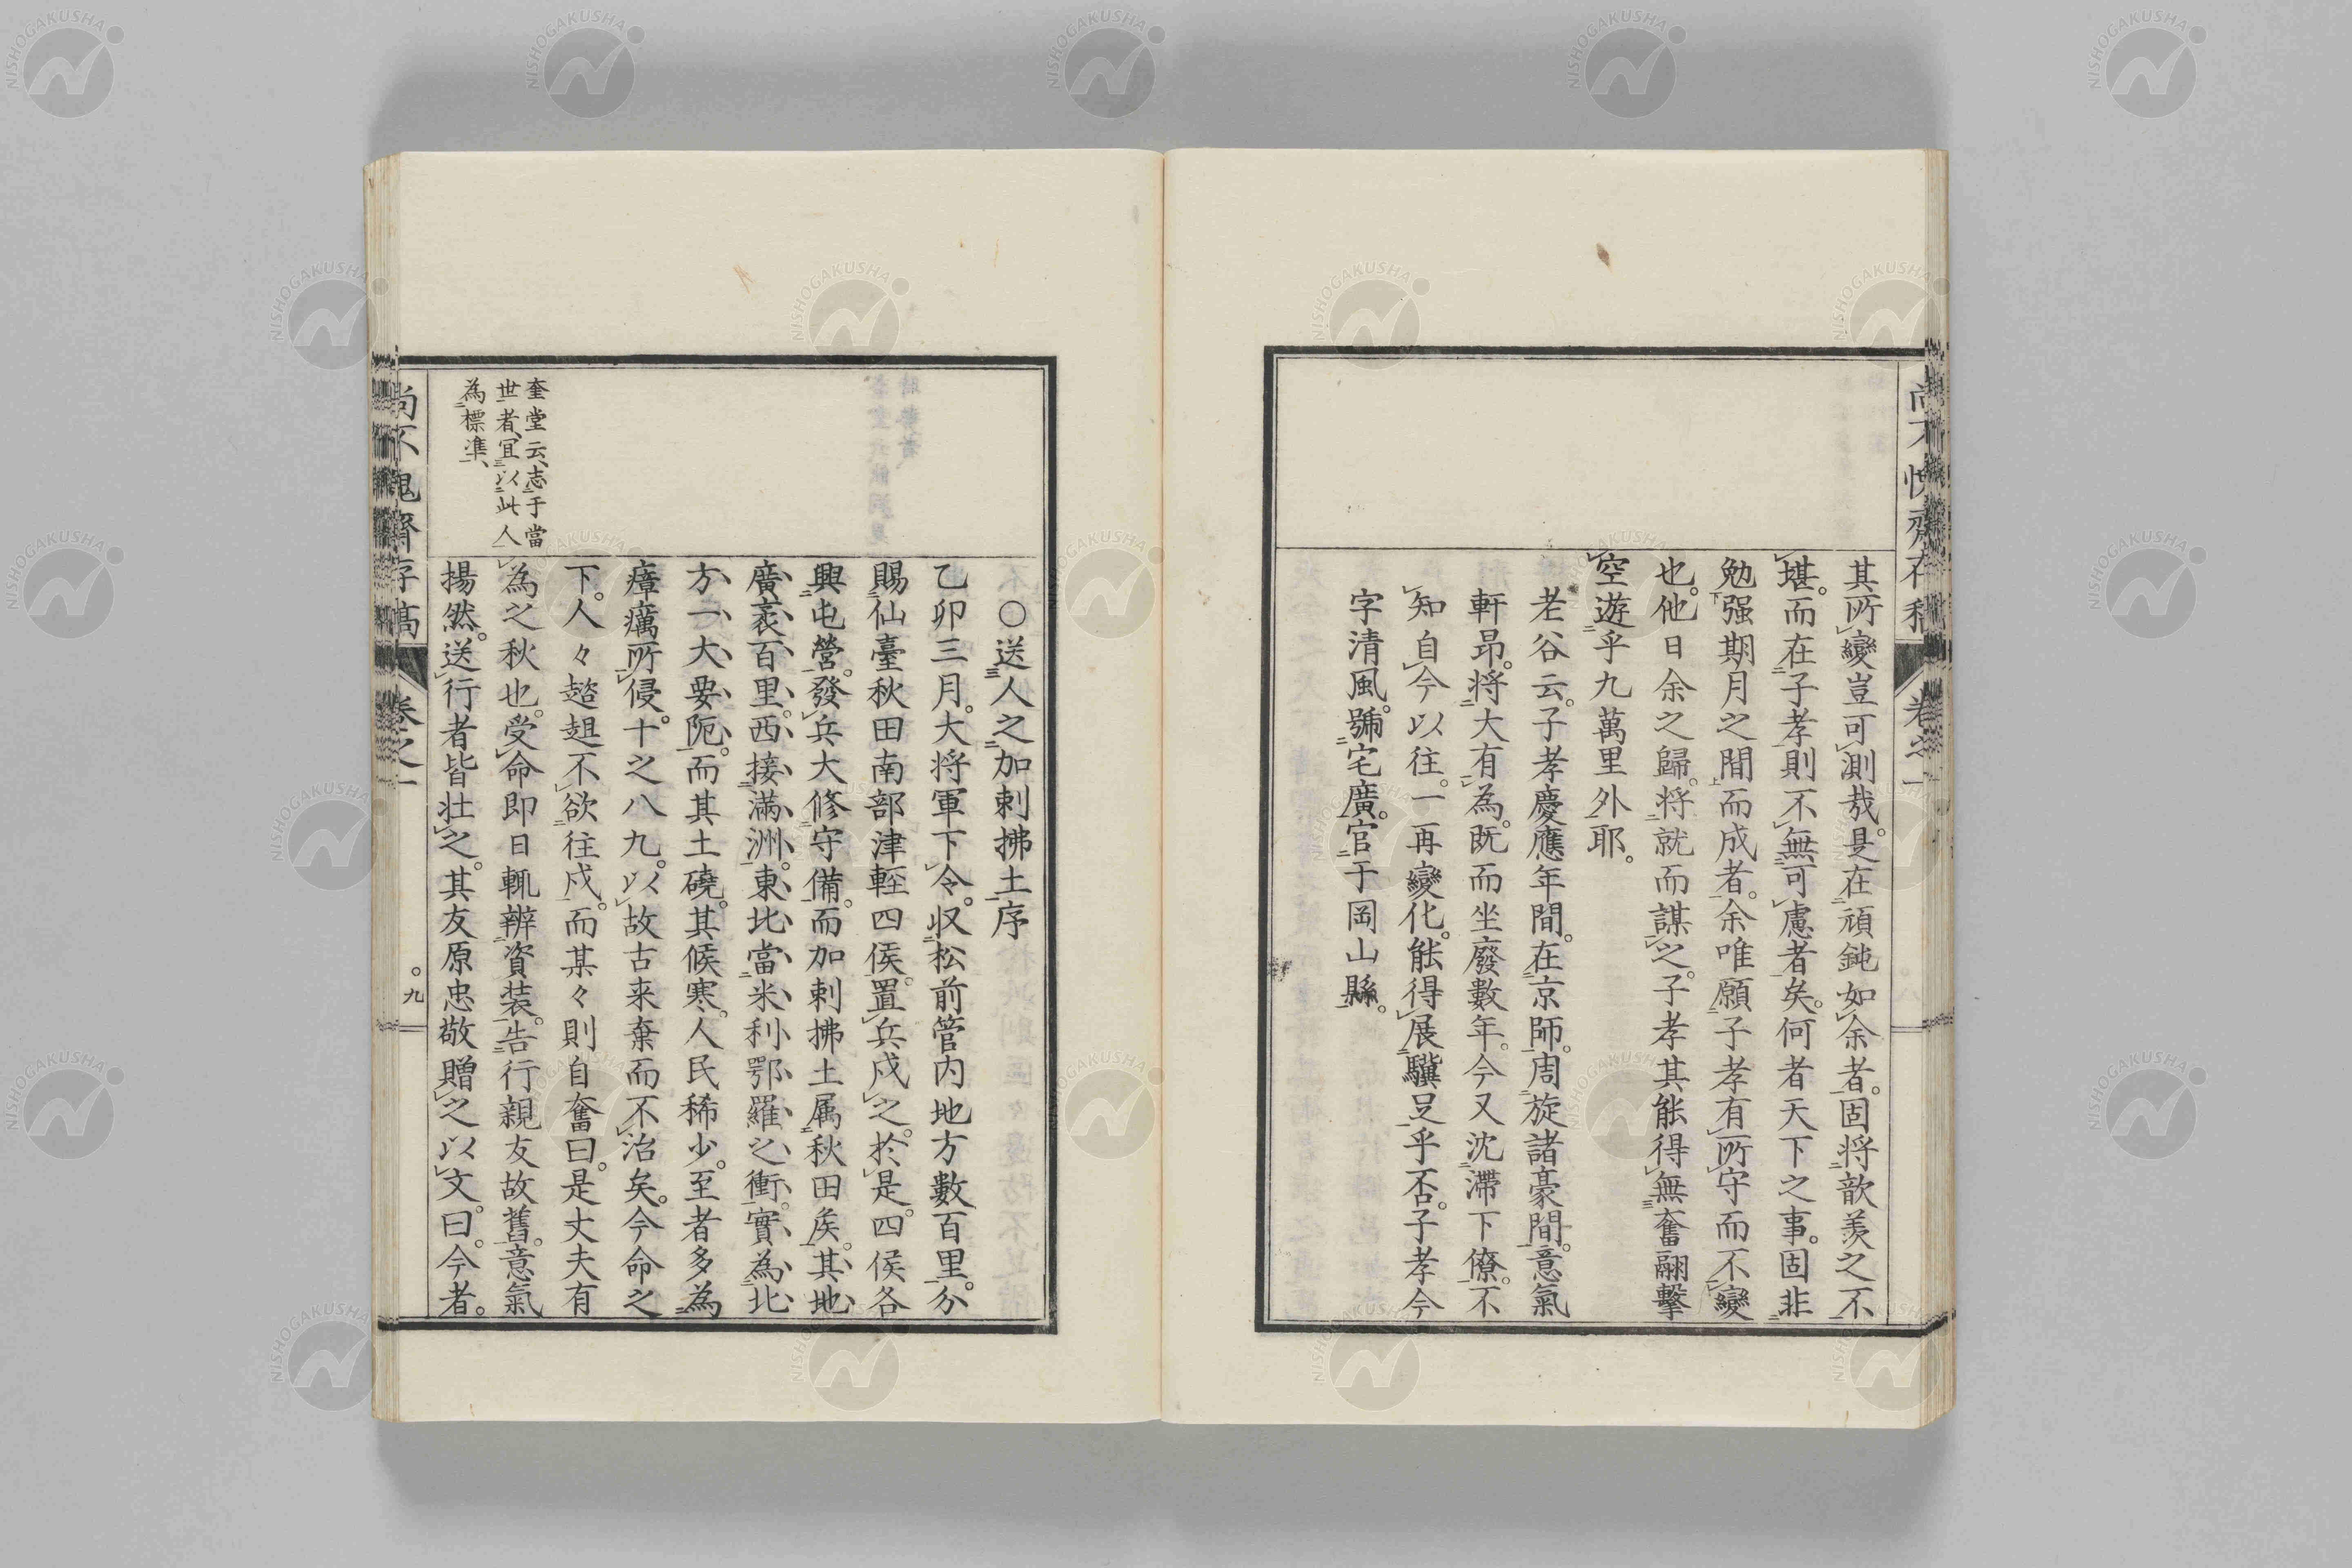 其所變豈可測哉。是在頑鈍如余者。固将歆羨之不
堪。而在子孝則不無可慮者矣。何者天下之事。固非
勉强期月之間而成者。余唯願子孝有所守而不變
也。他日余之歸。将就而謀之。子孝其能得無奮翮擊
空遊乎九萬里外耶。
老谷云。子孝慶應年間。在京師。周旋諸豪間。意氣
軒昂。将大有為。既而坐廢數年。今又沈滯下僚。不
知自今以往。一再變化。能得展驥足乎否。子孝今
字清風。號宅廣。官于岡山縣。
○送人之加剌拂土序
乙卯三月。大将軍下令。収松前管内地方數百里。分
賜仙臺秋田南部津輕四侯。置兵戍之。於是。四侯各
興屯營。發兵大修守備。而加剌拂土属秋田矦。其地
廣袤百里。西接滿洲。東北當米利鄂羅之衝。實為北
方一大要阨。而其土磽。其候寒。人民稀少。至者多為
瘴癘所侵。十之八九。以故古来棄而不治矣。今命之
下。人々趑趄不欲往戍。而某々則自奮曰。是丈夫有
為之秋也。受命即日輒辨資装。告行親友故舊。意氣
揚然。送行者皆壮之。其友原忠敬贈之以文。曰。今者。
奎堂云、志于當
世者、冝以此人
為標準、
尚不愧齋存稿
卷之一
九
NISHOGAKUSHA